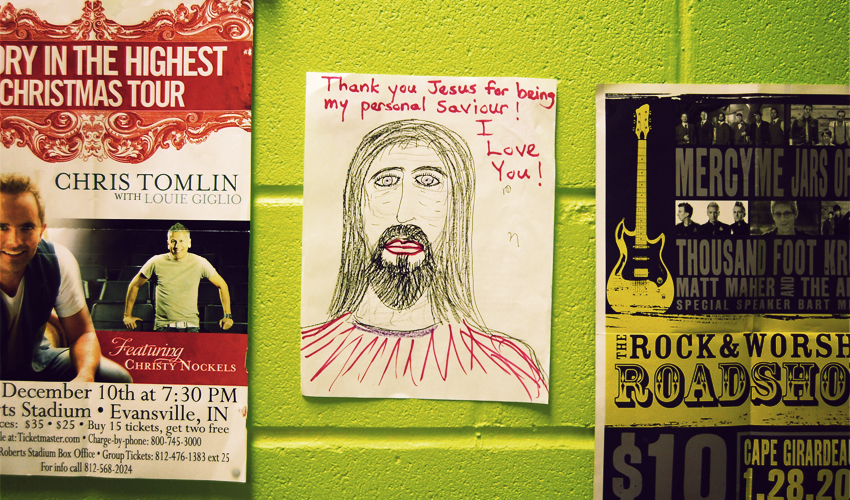 ORY IN THE HIGHEST
CHRISTMAS TOUR
CHRIS TOMLIN
WITH LOUIE GIGLIO
Featuring
CHRISTY NOCKELS
December 10th at 7:30 PM
rts Stadium • Evansville, IN
ces: $35 • $25 • Buy 15 tickets, get two free
le at: Ticketmaster.com • Charge-by-phone: 800-745-3000
Roberts Stadium Box Office • Group Tickets: 812-476-1383 ext 25
For info call 812-568-2024
Thank you Jesus for being
my personal Saviour!
I
Love
You!
MERCYME JARS OF
THOUSAND FOOT KR
MATT MAHER AND THE A
SPECIAL SPEAKER BART M
THE ROCK & WORSH
ROADSHO
$10
CAPE GIRARDEA
1.28.20